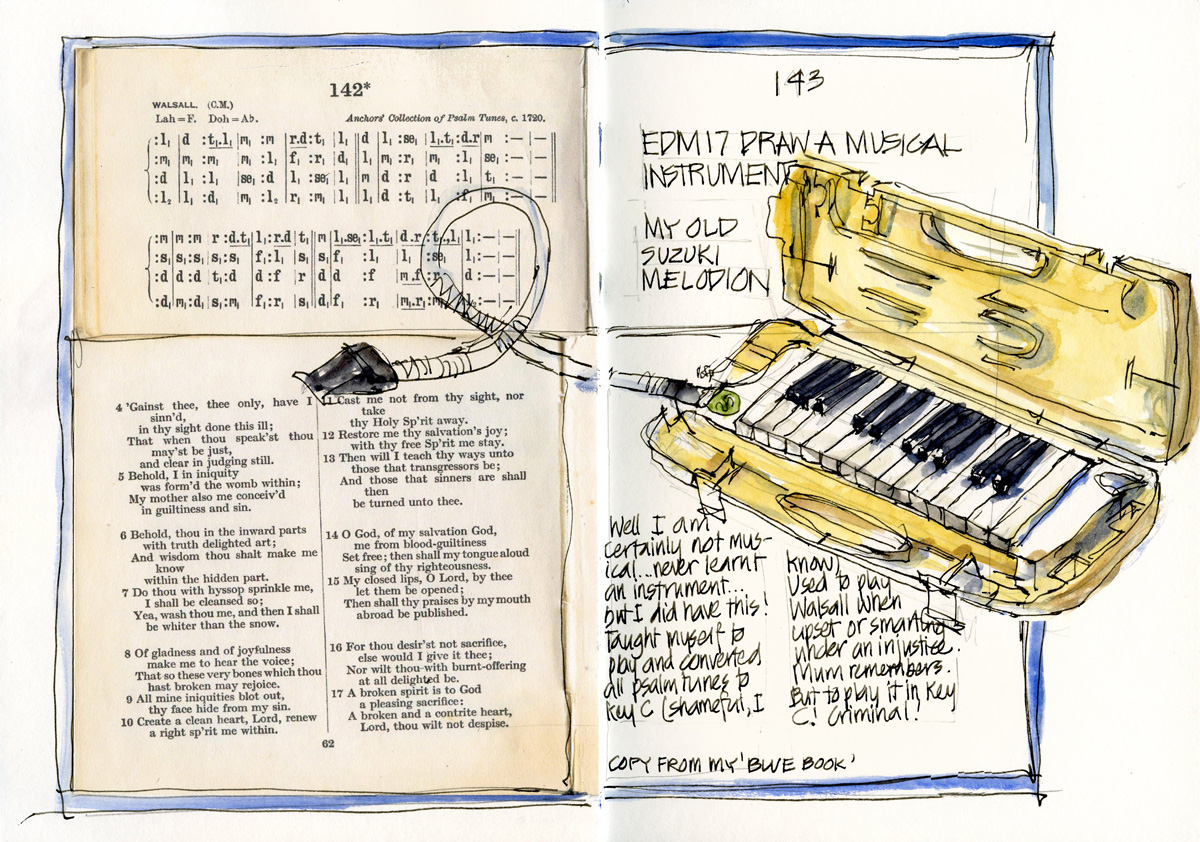 142*
WALSALL. (C.M.)
Lah=F. Doh=Ab. Anchors' Collection of Psalm Tunes, c. 1720.
4 'Gainst thee, thee only, have I
sinn'd,
in thy sight done this ill;
That when thou speak'st thou
may'st be just,
and clear in judging still.
5 Behold, I in iniquity
was form'd the womb within;
My mother also me conceiv'd
in guiltiness and sin.
6 Behold, thou in the inward parts
with truth delighted art;
And wisdom thou shalt make me
know
within the hidden part.
7 Do thou with hyssop sprinkle me,
I shall be cleansed so;
Yea, wash thou me, and then I shall
be whiter than the snow.
8 Of gladness and of joyfulness
make me to hear the voice;
That so these very bones which thou
hast broken may rejoice.
9 All mine iniquities blot out,
thy face hide from my sin.
10 Create a clean heart, Lord, renew
a right sp'rit me within.
11 Cast me not from thy sight, nor
take
thy Holy Sp'rit away.
12 Restore me thy salvation's joy;
with thy free Sp'rit me stay.
13 Then will I teach thy ways unto
those that transgressors be;
And those that sinners are shall
then
be turned unto thee.
14 O God, of my salvation God,
me from blood-guiltiness
Set free; then shall my tongue aloud
sing of thy righteousness.
15 My closed lips, O Lord, by thee
let them be opened;
Then shall thy praises by my mouth
abroad be published.
16 For thou desir'st not sacrifice,
else would I give it thee;
Nor wilt thou with burnt-offering
at all delighted be.
17 A broken spirit is to God
a pleasing sacrifice:
A broken and a contrite heart,
Lord, thou wilt not despise.
62
143
EDM17 DRAW A MUSICAL
INSTRUMENT
MY OLD
SUZUKI
MELODION
Well I am
certainly not mus-
ical...never learnt
an instrument...
but I did have this!
Taught myself to
play and converted
all psalm tunes to
key C (shameful, I
know)
Used to play
Walsall when
upset or smarting
under an injustice.
Mum remembers.
But to play it in key
C! Criminal!
COPY FROM MY 'BLUE BOOK'